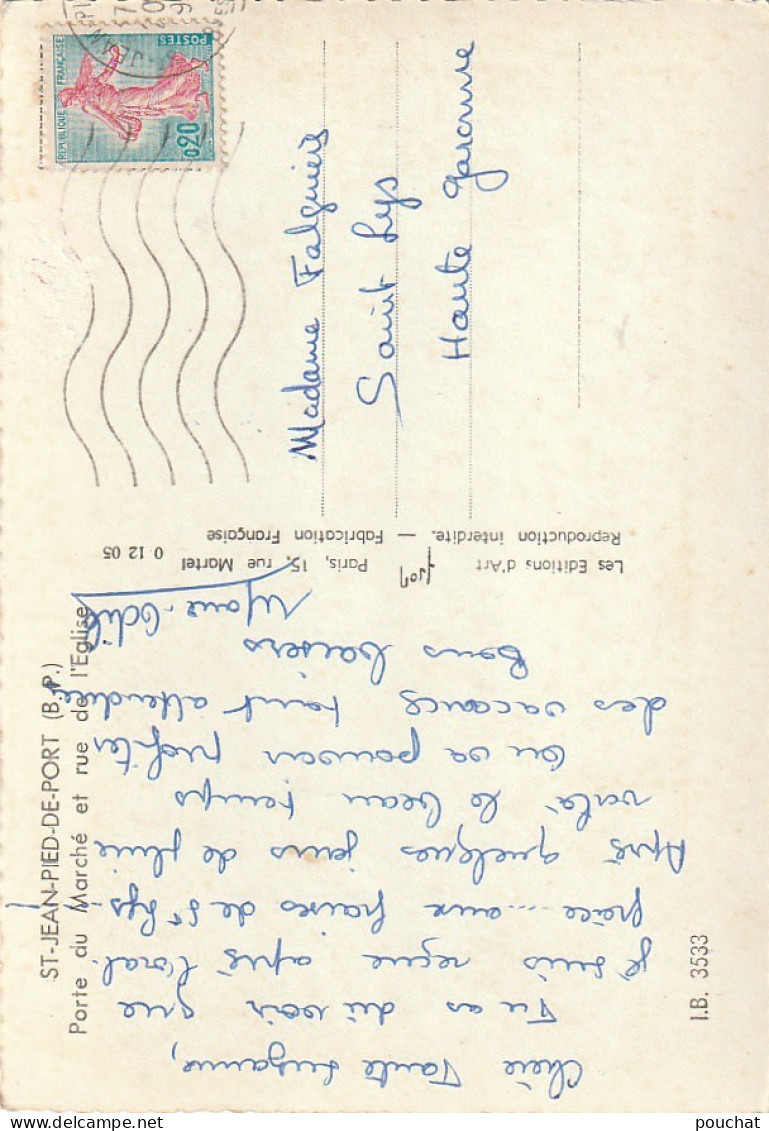 ST-JEAN-PIED-DE-PORT (B.-P.)
Porte du Marché et rue de l'Eglise
Chère Tante Suzanne,
Tu as dû voir que
je suis reçue après l'oral
grâce ... aux fraises de St Lys.
Après quelques jours de pluie
voilà le beau temps
on va pouvoir profiter
des vacances tant attendues
Bons baisers
Marie-Odile
I.B. 3533
Les Editions d'Art yvon Paris, 15, rue Martel 0 12 05
Reproduction interdite. — Fabrication Française
REPUBLIQUE FRANÇAISE
POSTES
0,20
Madame Falguière
Saint Lys
Haute Garonne
pouchat